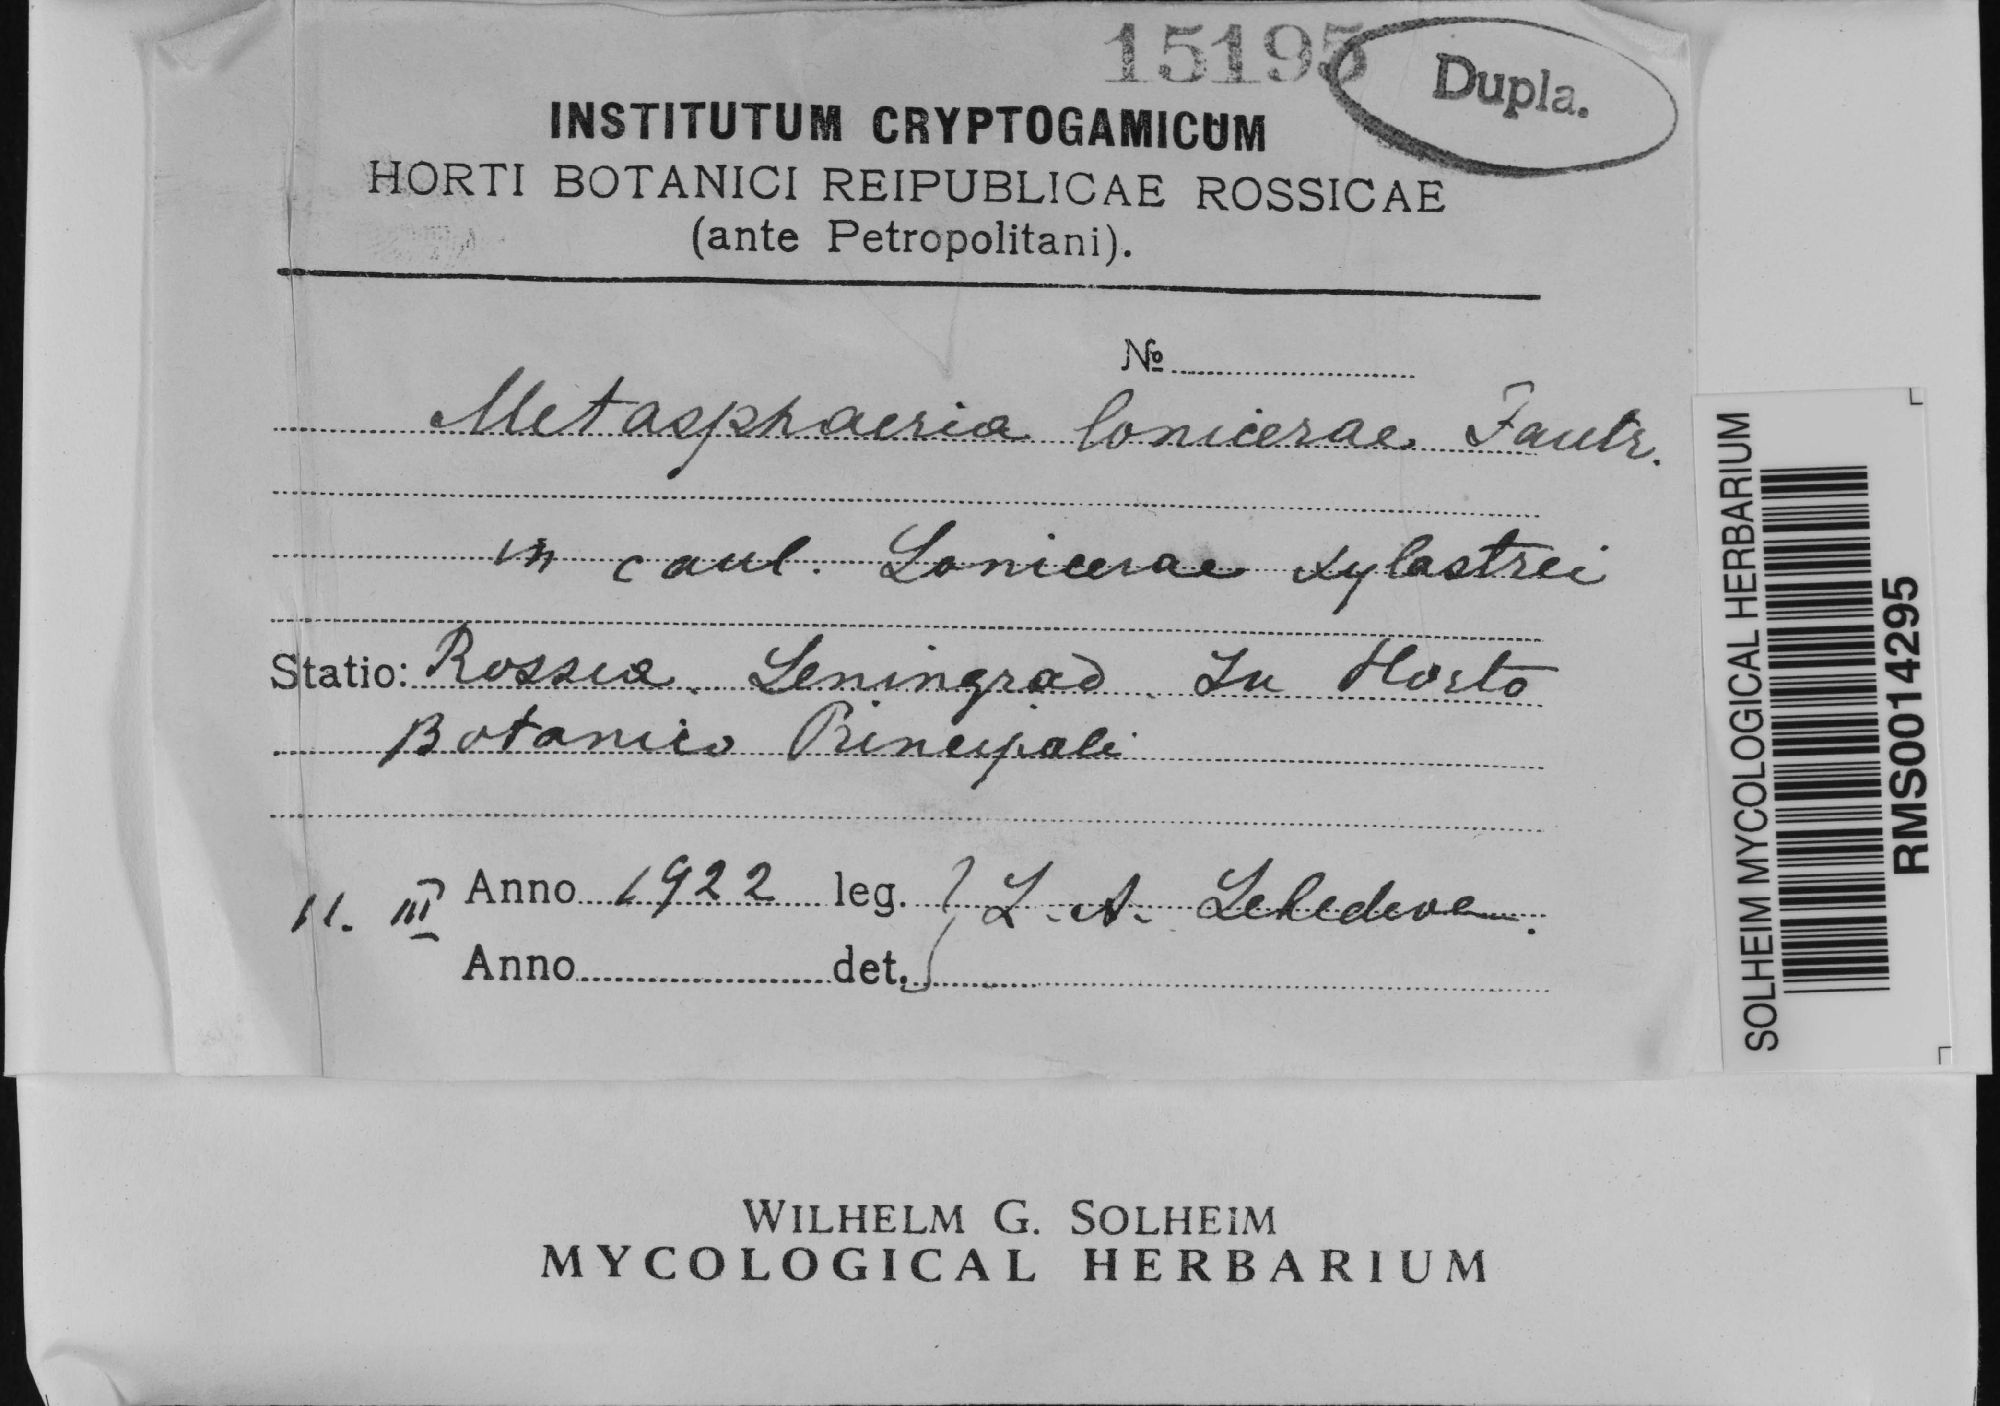 15195
Dupla.
INSTITUTUM CRYPTOGAMICUM
HORTI BOTANICI REIPUBLICAE ROSSICAE
(ante Petropolitani).
№
Metasphaeria lonicerae Fautr.
in caul. Lonicerae xylostei
Statio: Rossia. Leningrad. In Horto
Botanico Principali
11. III Anno 1922 leg. } L. A. Lebedeva.
Anno det.
SOLHEIM MYCOLOGICAL HERBARIUM
RMS0014295
WILHELM G. SOLHEIM
MYCOLOGICAL HERBARIUM